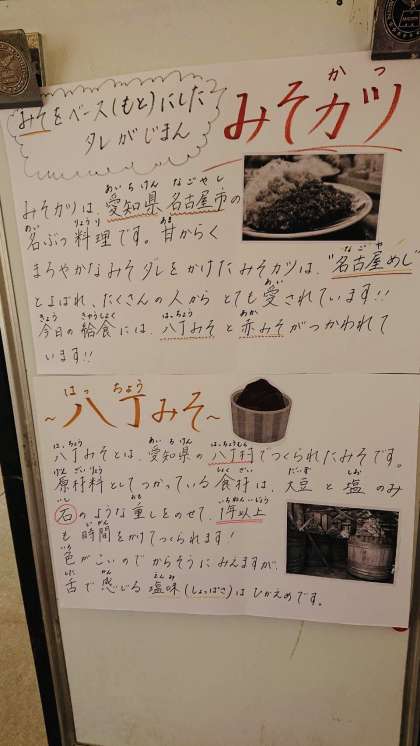 みそをベース(もと)にした
タレがじまん
みそカツ
みそカツは、愛知県 名古屋市の
名ぶつ料理です。甘からく
まろやかなみそダレをかけたみそカツは、"名古屋めし"
とよばれ、たくさんの人から とても愛されています!!
今日の給食には、八丁みそと赤みそがつかわれて
います!!
~八丁みそ~
八丁みそとは、愛知県の八丁村でつくられたみそです。
原材料としてつかっている食材は大豆と塩のみ
石のような重しをのせて、1年以上
も時間をかけてつくられます!
色がこいのでからそうにみえますが、
舌で感じる塩味(しょっぱさ)はひかえめです。